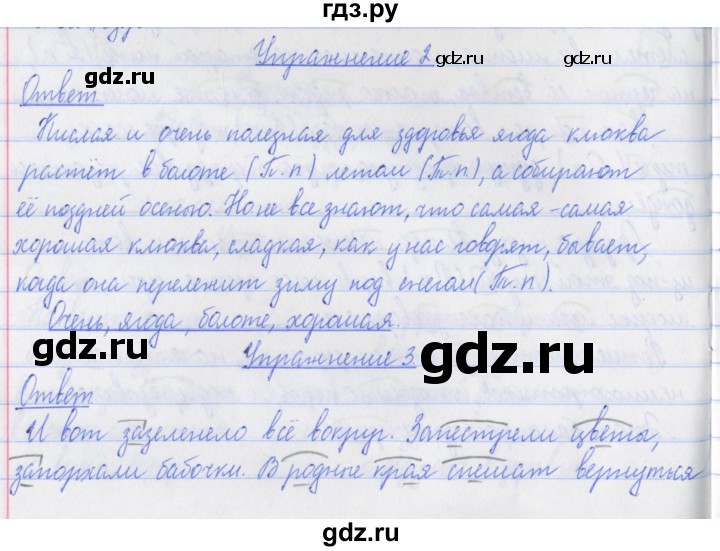 гдз.ру
Упражнение 2
gdz.ru
gdz.ru
Ответ
Кислая и очень полезная для здоровья ягода клюква
растёт в болоте (П.п) летом (Т.п), а собирают
её поздней осенью. Но не все знают, что самая-самая
хорошая клюква, сладкая, как у нас говорят, бывает,
когда она перележит зиму под снегом (Т.п).
Очень, ягода, болоте, хорошая.
gdz.ru
gdz.ru
Упражнение 3
Ответ
И вот зазеленело всё вокруг. Запестрели цветы,
запорхали бабочки. В родные края спешат вернуться
gdz.ru